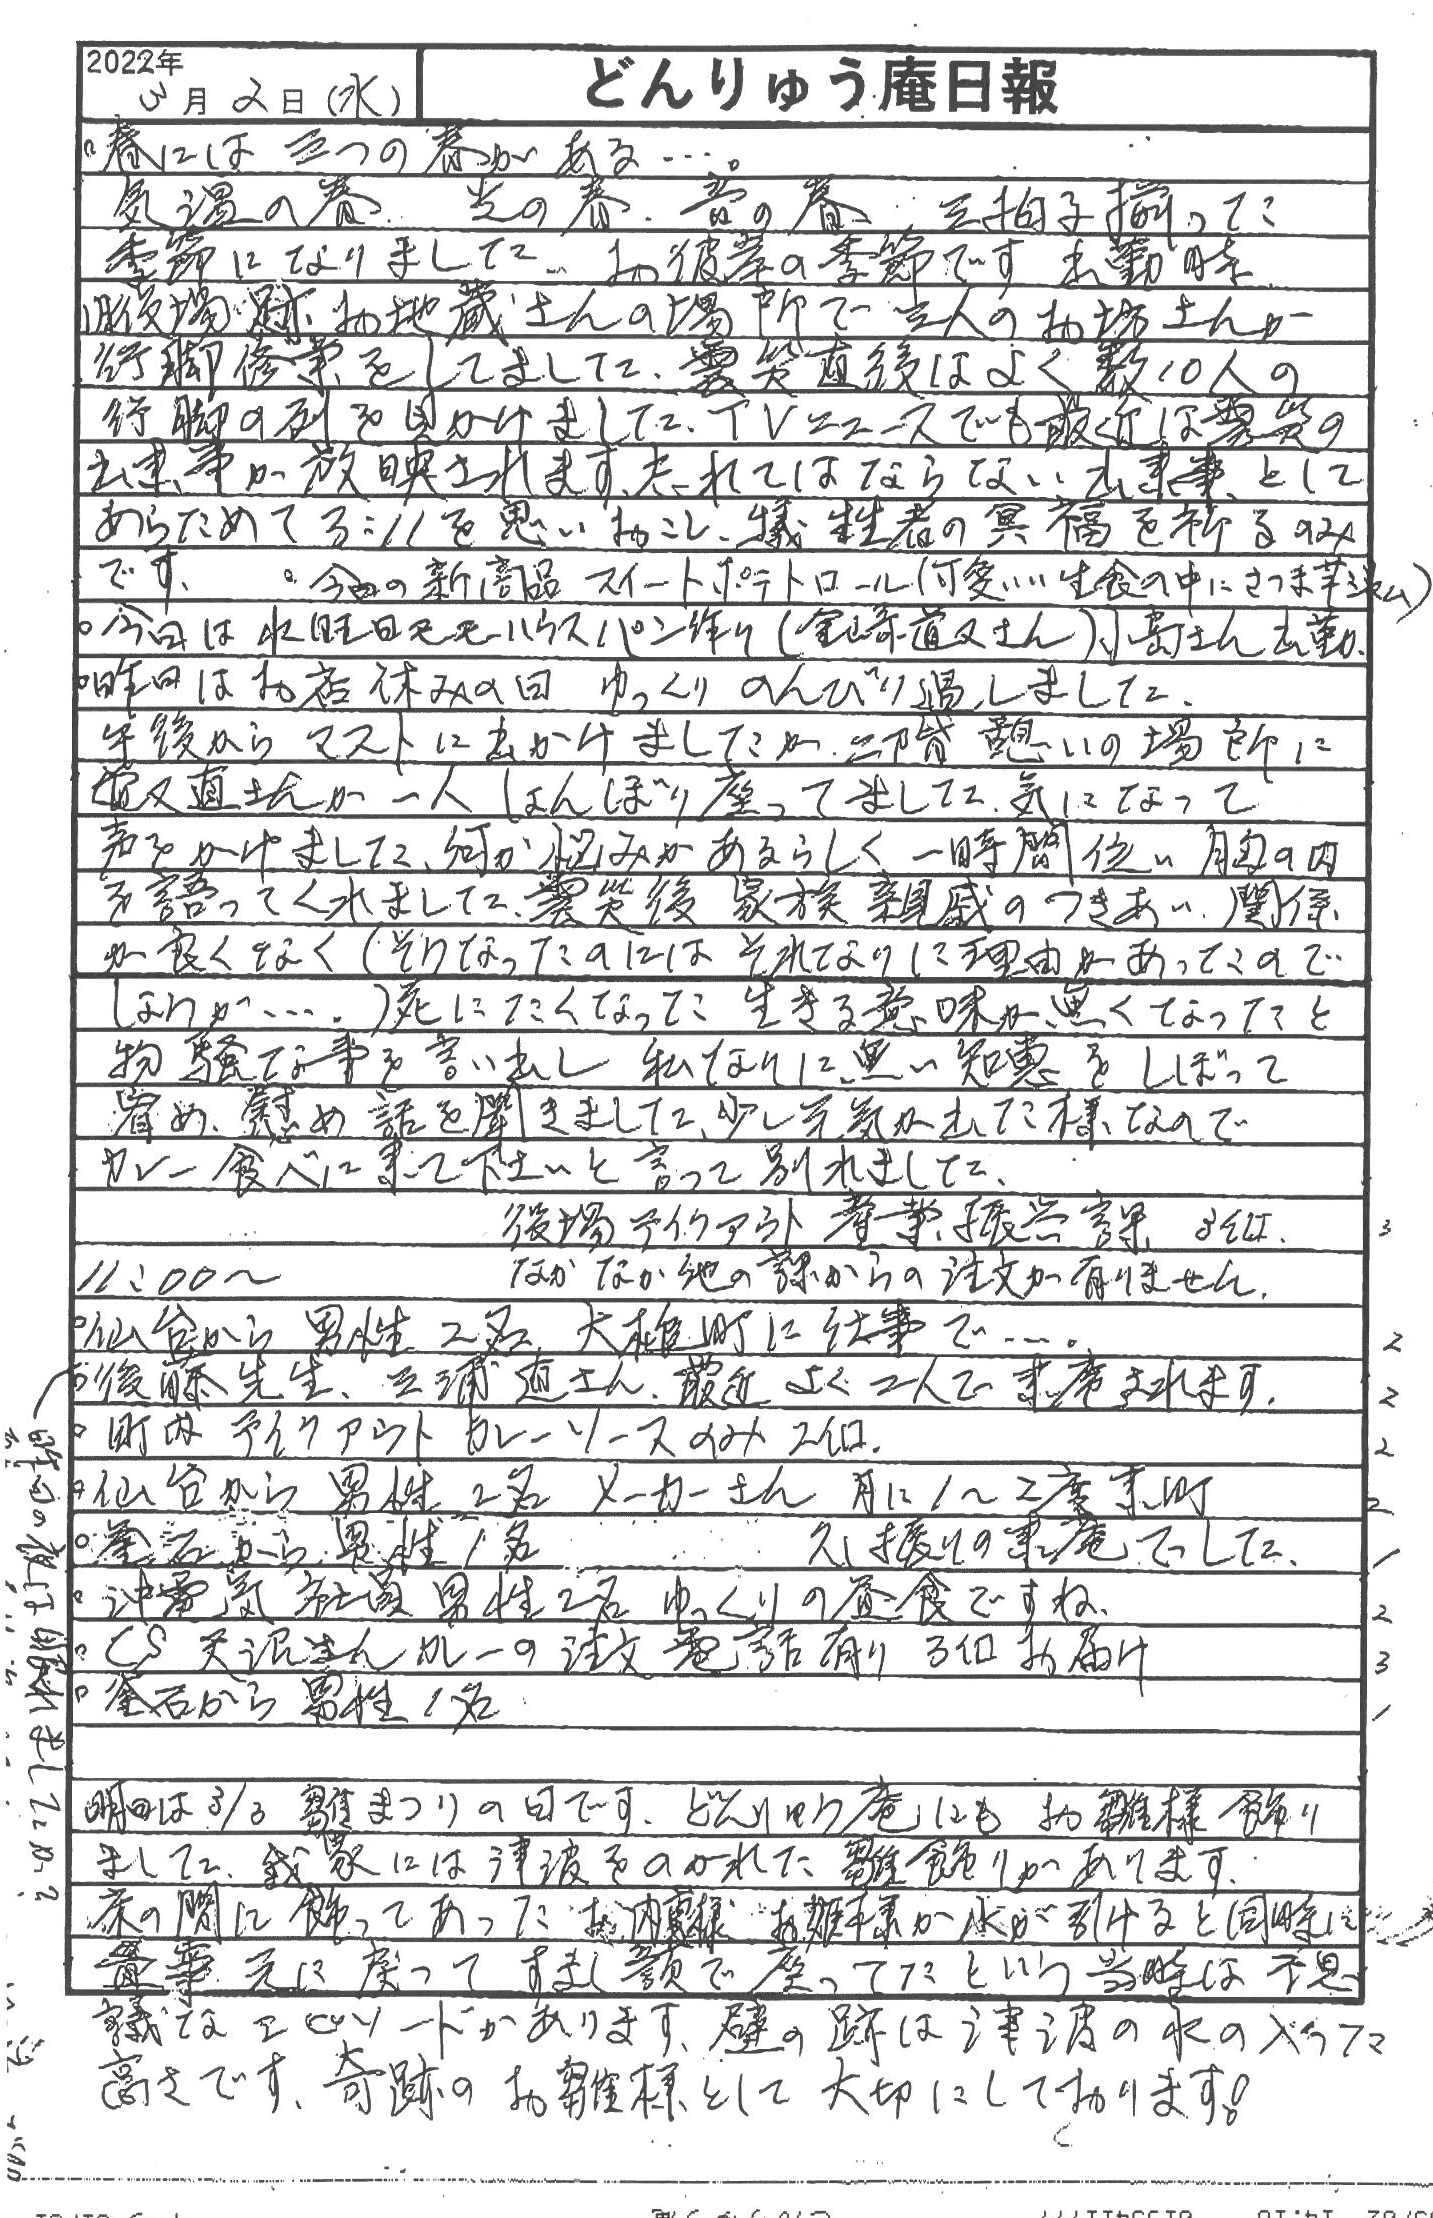 2022年
3月2日(水)
どんりゅう庵日報
。春には三つの春がある…。
気温の春 光の春 音の春 三拍子揃った
季節になりました、お彼岸の季節です 出勤時
旧役場跡 お地蔵さんの場所で 三人のお坊さんが
行脚修業をしてました、震災直後はよく数10人の
行脚の列を見かけました、TVニュースでも最近は震災の
出来事が放映されます、忘れてはならない出来事、として
あらためて3:11を思いおこし、犠牲者の冥福を祈るのみ
です、 。今日の新商品 スイートポテトロール(可愛いい生食の中にさつま芋ジャム)
。今日は水曜日モモーハウスパン作り(道又さん)小島さん出勤、
。昨日はお店休みの日 ゆっくり のんびり過しました、
午後から マストに出かけましたが、二階 憩いの場所に
直さんが一人 しょんぼり座ってました、気になって
声をかけました、何か悩みがあるらしく 一時間位い 胸の内
を語ってくれました、震災後 家族 親戚のつきあい、関係
が良くなく(そうなったのには それなりに理由があったので
しょうが….)死にたくなった 生きる意味が無くなったと
物騒な事を言い出し 私なりに無い知恵をしぼって
宥め、慰め 話を聞きました、少し元気が出た様なので
カレー食べに来て下さいと言って別れました、
役場テイクアウト 産業振興課 3個、 3
11:00〜 なかなか他の課からの注文が有りません、
。仙台から 男性 2名 大槌町に仕事で…。 2
。後藤先生、三浦直さん、最近 よく二人で来庵されます、 2
。町内 テイクアウト カレーソースのみ 2個、 2
。仙台から 男性 2名 メーカーさん 月に1〜2度来町 2
。釜石から 男性 1名 久し振りの来庵でした、 1
。沖電気 社員 男性 2名 ゆっくりの昼食ですね、 2
。CS 天沼さんカレーの注文 電話有り 3個 お届け 3
。釜石から 男性 1名 1
明日は3/3 雛まつりの日です、どんりゅう庵にも お雛様飾り
ました、我家には津波をのがれた 雛飾りがあります、
床の間に飾ってあった お内裏様 お雛様が水が引けると同時に
元に戻って すまし顔で座ってたという当時は不思
議なエピソードがあります、壁の跡は津波の水の入った
高さです、奇跡のお雛様として 大切にしております!